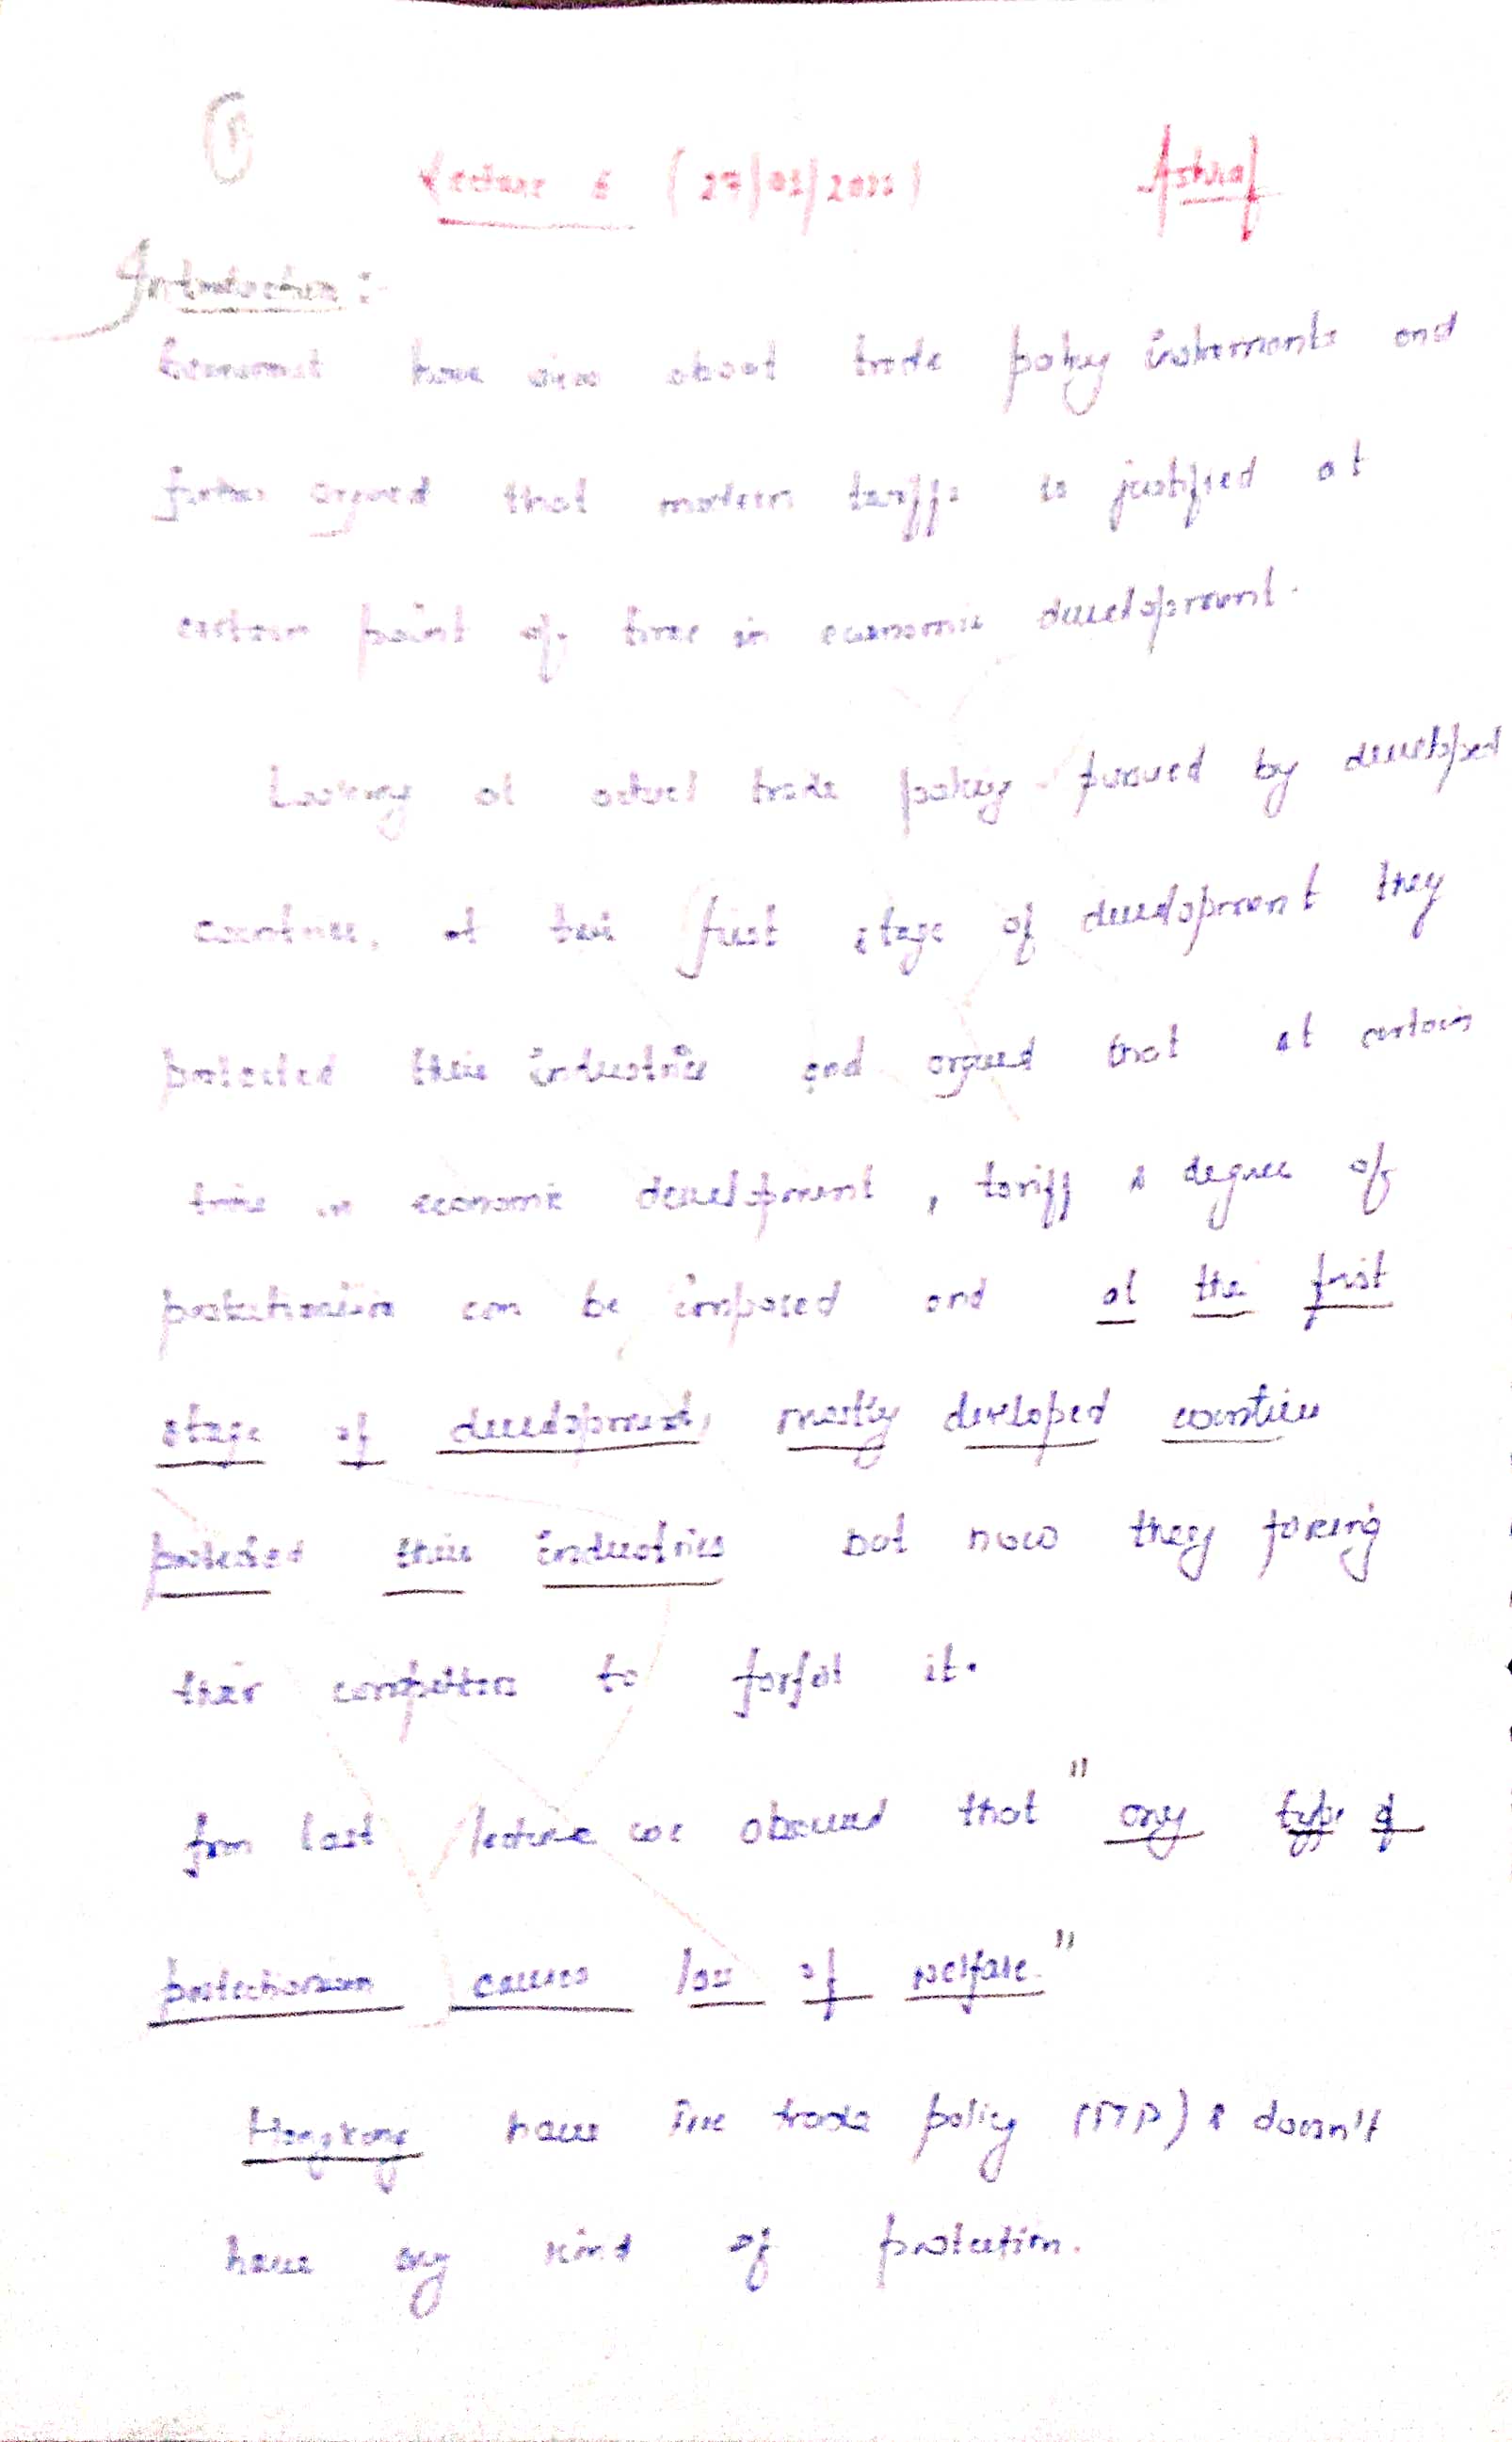 1
Lecture 6 (27/01/2022) Ashraf
Introduction :-
Economist have view about trade policy instruments and
further argued that modern tariffs is justified at
certain point of time in economic development.
Looking at actual trade policy pursued by developed
countries, at their first stage of development they
protected their industries and argued that at certain
time in economic development, tariff & degree of
protectionism can be imposed and at the first
stage of development, mostly developed countries
protected their industries but now they forcing
their competitors to forfeit it.
from last lecture we observed that "any type of
protectionism causes loss of welfare."
Hongkong have free trade policy (FTP) & doesn't
have any kind of protection.